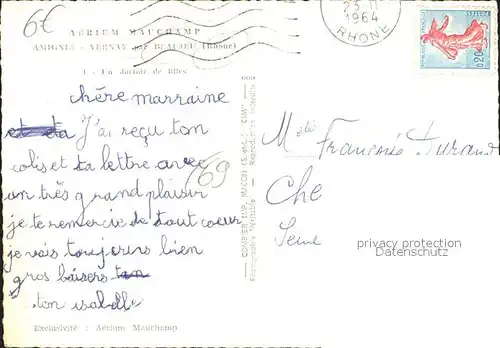 6€
AÉRIUM MAUCHAMP
AMIGNIÉ - VERNAY, par BEAUJEU (Rhône)
1 - Un dortoir de filles
chère marraine
J'ai reçu ton
colis et ta lettre avec
un très grand plaisir
je te remercie de tout coeur
je vais toujours bien
gros baisers
ton isabelle
Exclusivité : Aérium Mauchamp
(69
COMBIER IMP. MACON (S.-et-L.) "CIM"
Photographie Véritable - Reproduction Interdite
23-11
1964
RHONE
POSTES
0,20
Melle Françoise Durand
Che
Seine
privacy protection
Datenschutz